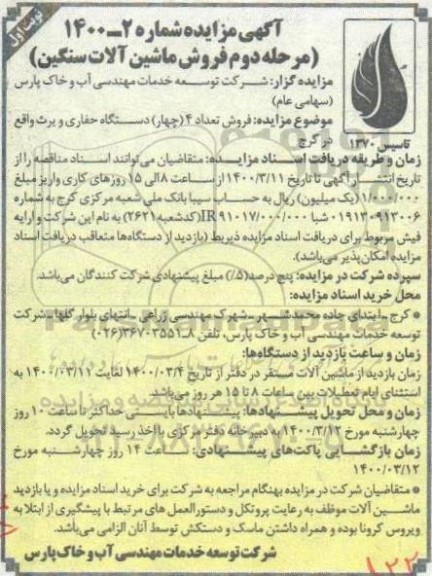 نوبت اول
آگهی مزایده شماره ۲-۱۴۰۰
(مرحله دوم فروش ماشین آلات سنگین)
مزایده گزار: شرکت توسعه خدمات مهندسی آب و خاک پارس
(سهامی عام)
موضوع مزایده: فروش تعداد ۴ (چهار) دستگاه حفاری و پرت واقع
در کرج
تاسیس ۱۳۷۰
زمان و طریقه دریافت اسناد مزایده: متقاضیان می‌توانند اسناد مناقصه را از
تاریخ انتشار آگهی تا تاریخ ۱۴۰۰/۳/۱۱ از ساعت ۸ الی ۱۵ روزهای کاری واریز مبلغ
۱/۰۰۰/۰۰۰ (یک میلیون) ریال به حساب سیبا بانک ملی شعبه مرکزی کرج به شماره
۰۱۹۱۳۰۹۱۳۰۰۶ شبا IR۹۱۰۱۷/۰۰۰/۰۰۰ (کدشعبه ۲۶۲۱) به نام این شرکت و ارایه
فیش مربوط برای دریافت اسناد مزایده ذیربط (بازدید از دستگاه‌ها متعاقب دریافت اسناد
مزایده امکان‌پذیر می‌باشد).
سپرده شرکت در مزایده: پنج درصد (۵٪) مبلغ پیشنهادی شرکت کنندگان می‌باشد.
محل خرید اسناد مزایده:
* کرج - ابتدای جاده محمدشهر - شهرک مهندسی زراعی - انتهای بلوار گلها - شرکت
توسعه خدمات مهندسی آب و خاک پارس، تلفن ۸-۳۶۷۰۳۵۵۱ (۰۲۶)
زمان و ساعت بازدید از دستگاه‌ها:
زمان بازدید از ماشین آلات مستقر در دفتر از تاریخ ۱۴۰۰/۰۳/۴ لغایت ۱۴۰۰/۰۳/۱۱ به
استثنای ایام تعطیلات بین ساعات ۸ تا ۱۵ هر روز می‌باشد.
زمان و محل تحویل پیشنهادها: پیشنهادها بایستی حداکثر تا ساعت ۱۰ روز
چهارشنبه مورخ ۱۴۰۰/۳/۱۲ به دبیرخانه دفتر مرکزی با اخذ رسید تحویل گردد.
زمان بازگشایی پاکت‌های پیشنهادی: ساعت ۱۴ روز چهارشنبه مورخ
۱۴۰۰/۰۳/۱۲
* متقاضیان شرکت در مزایده بهنگام مراجعه به شرکت برای خرید اسناد مزایده و یا بازدید
ماشین آلات موظف به رعایت پروتکل و دستورالعمل های مرتبط با پیشگیری از ابتلا به
ویروس کرونا بوده و همراه داشتن ماسک و دستکش توسط آنان الزامی می‌باشد.
شرکت توسعه خدمات مهندسی آب و خاک پارس
۱۲۲